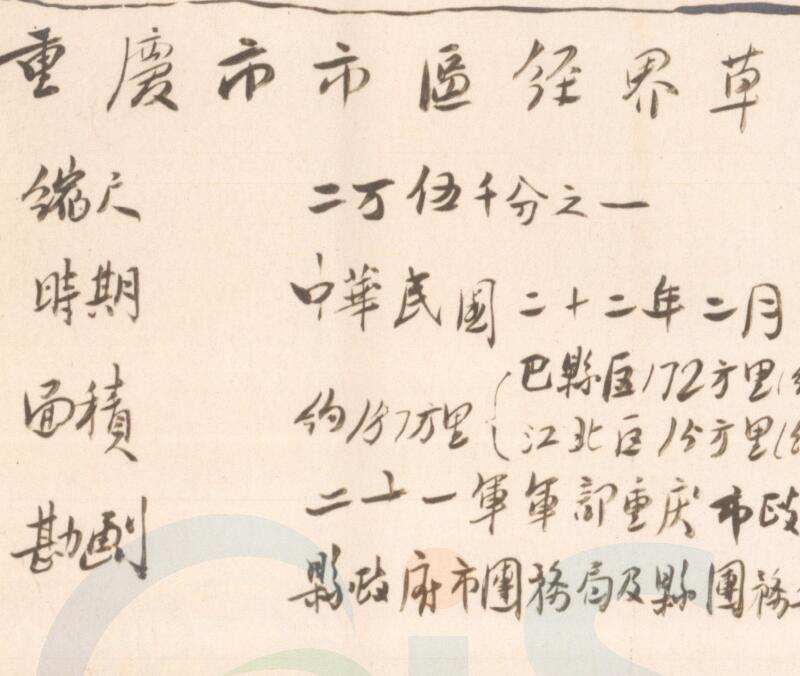 重慶市市區经界草
縮尺 二万伍千分之一
時期 中華民國二十二年二月
面積 約187方里 巴縣区172方里
江北区 方里
勘劃 二十一軍軍部重庆市政
縣政府市團務局及縣團務